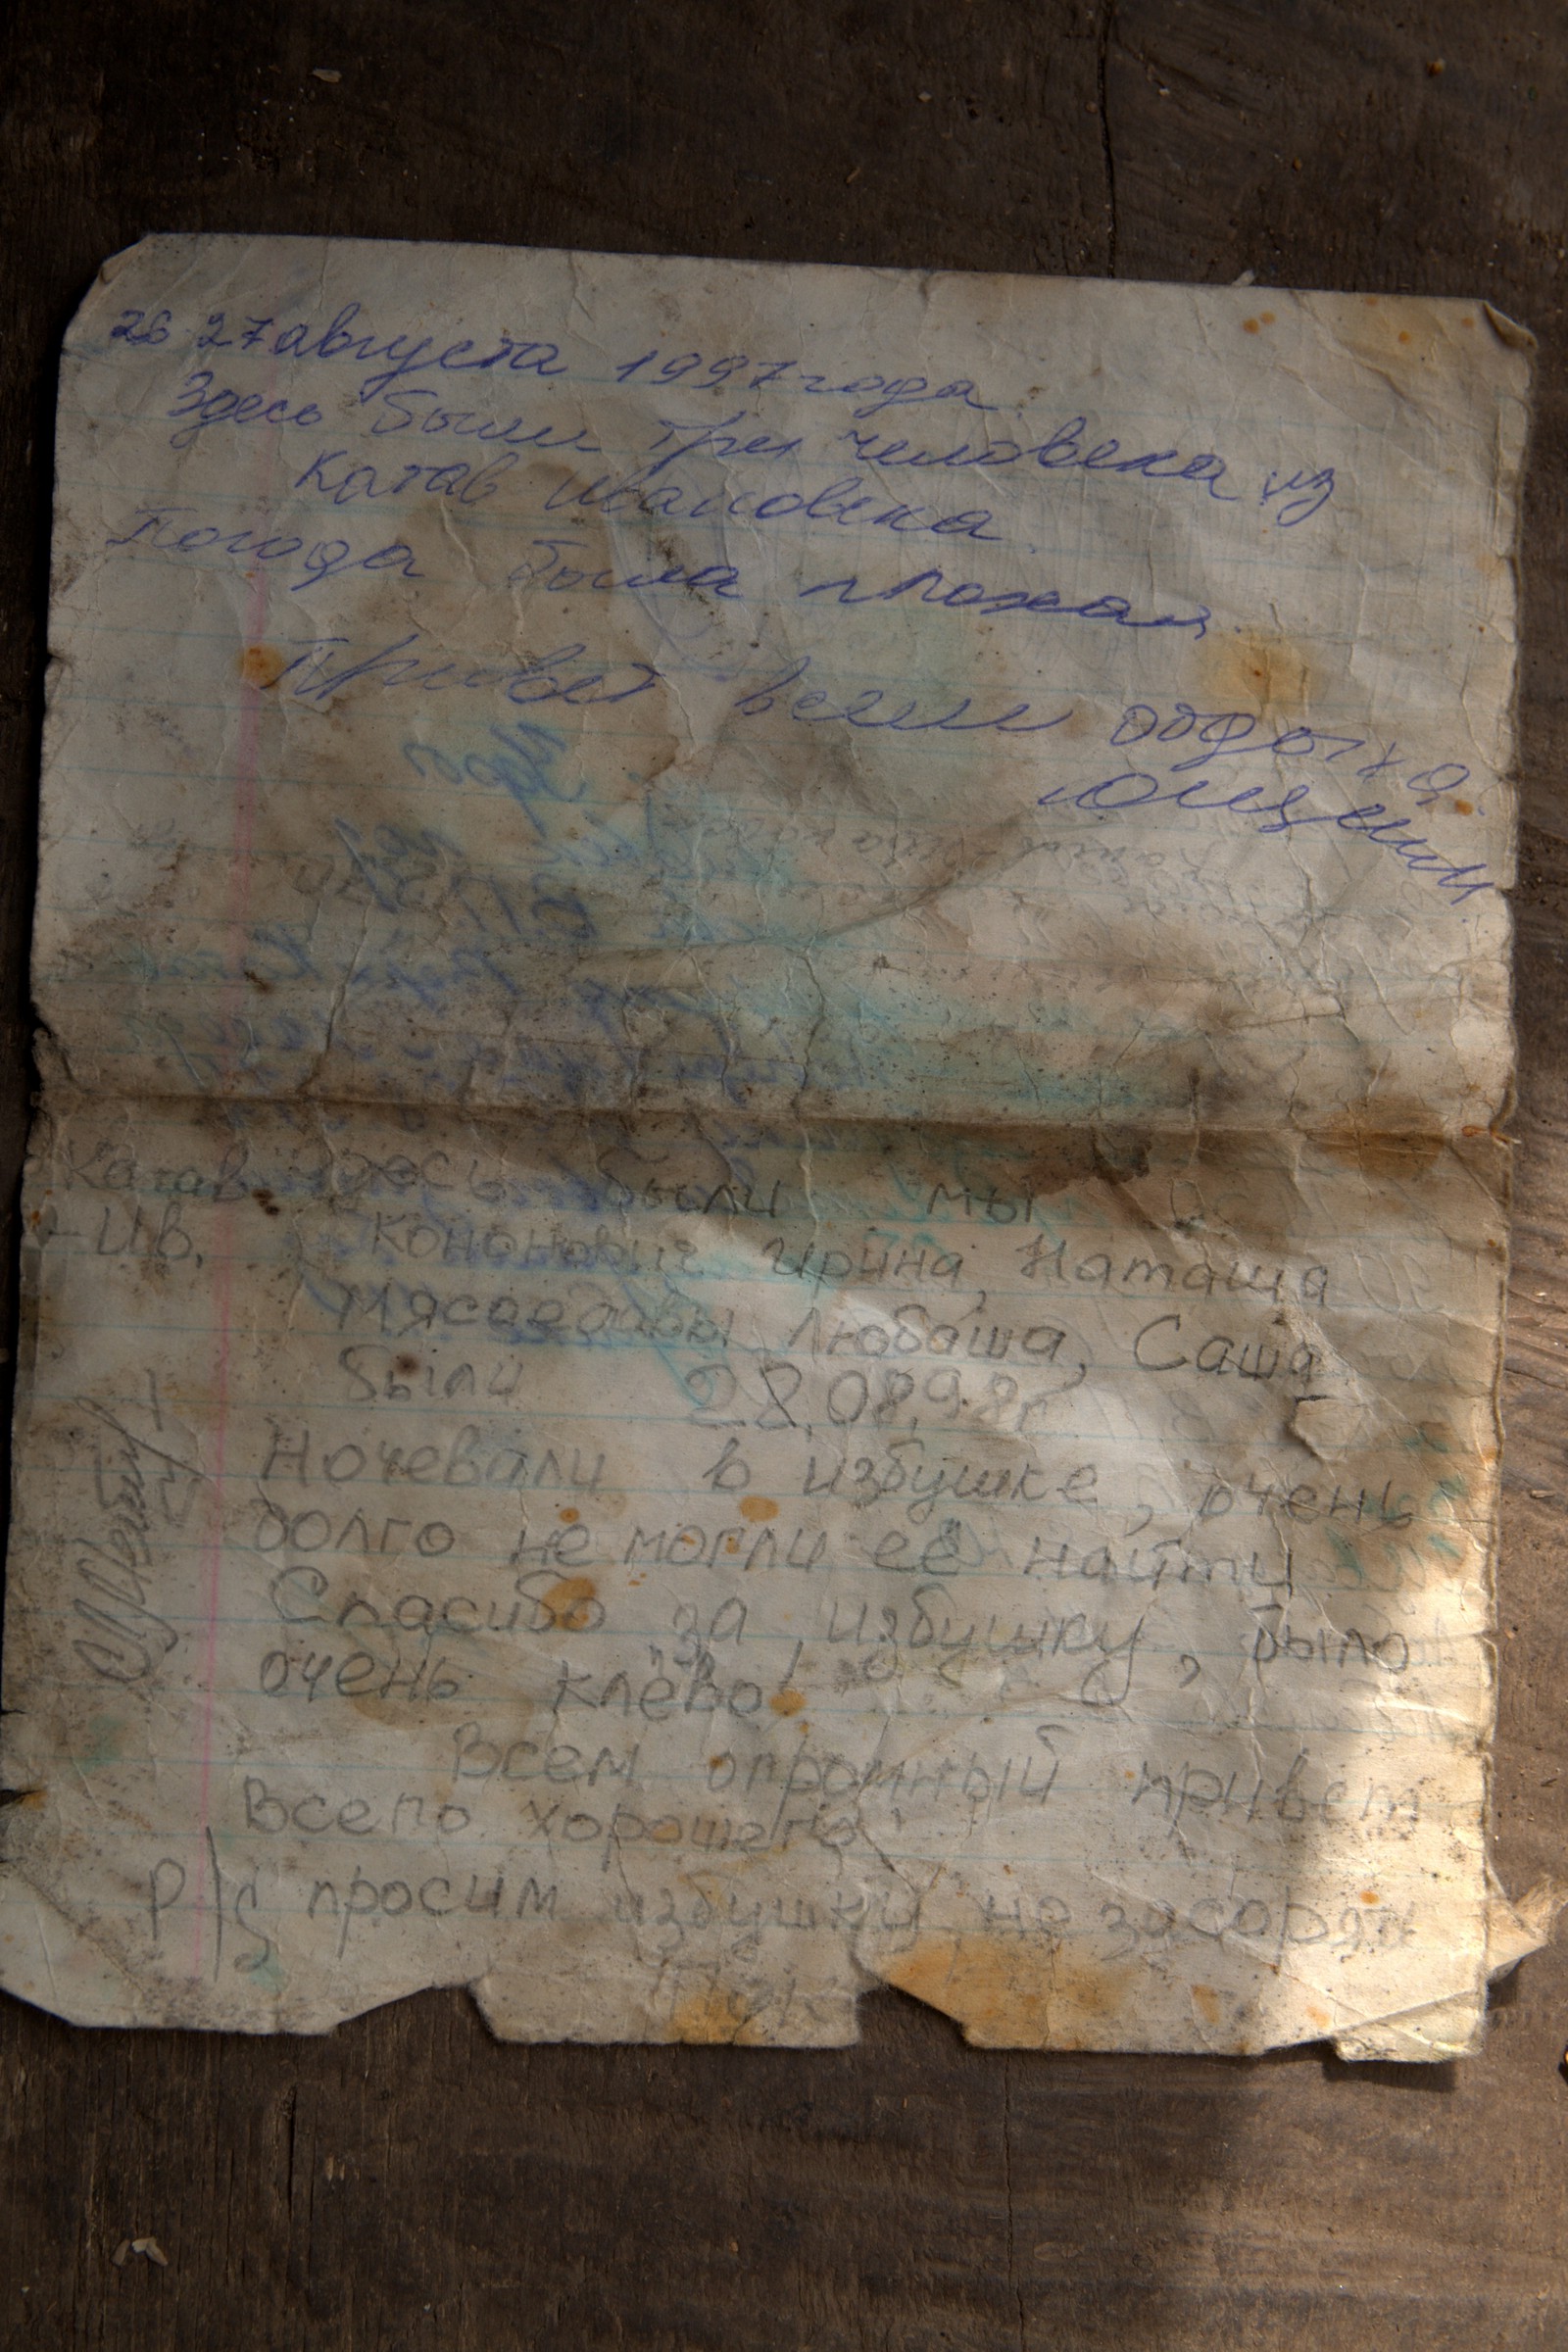 26 27 августа 1997 года.
Здесь были три человека из
Катав Ивановска.
Погода была плохая.
Привет всем отдыха
ющими.
Катав Здесь были мы
-Ив. Кононович Ирина, Наташа
Мясоедовы Любаша, Саша
были 28.08.98г
Ночевали в избушке, очень
долго не могли её найти
Спасибо за избушку, было
очень клёво!
Всем огромный привет
Всего хорошего!
P/S просим избушки не засорять